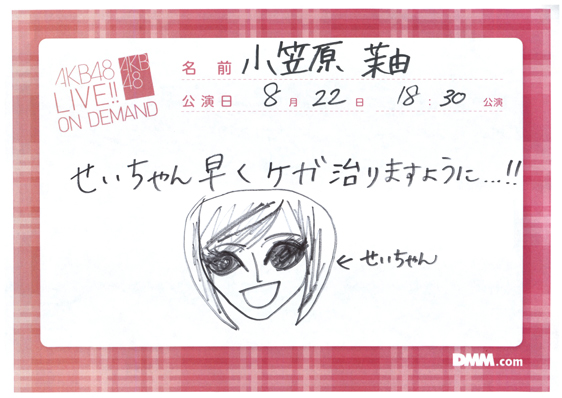 AKB48
LIVE!!
ON DEMAND
AKB
48
名 前 小笠原 茉由
公演日 8月 22日 18:30 公演
せいちゃん早くケガ治りますように...!!
← せいちゃん
DMM.com